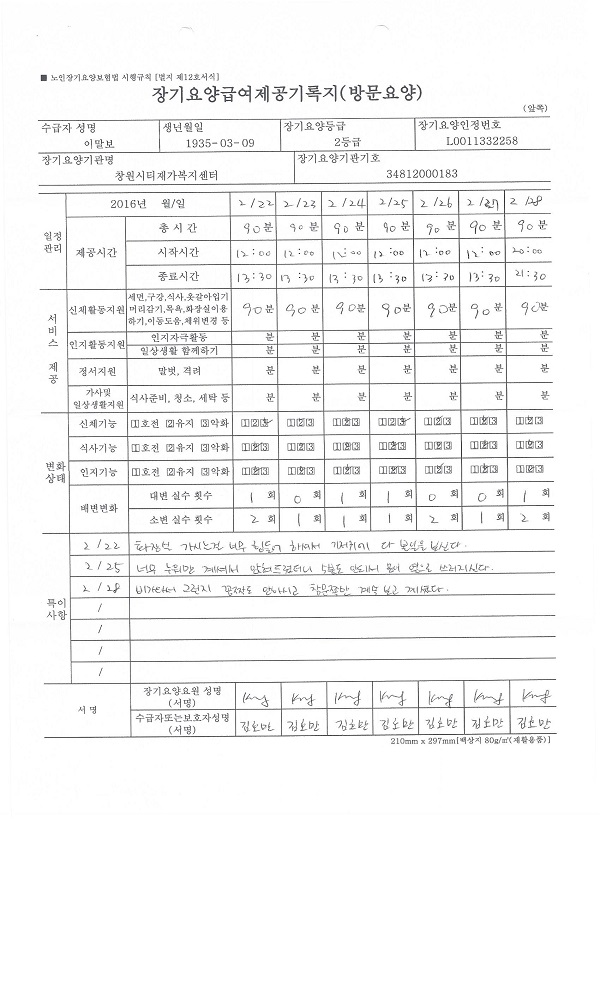 ■ 노인장기요양보험법 시행규칙 [별지 제12호서식]
장기요양급여제공기록지(방문요양)
(앞쪽)
수급자 성명 생년월일 장기요양등급 장기요양인정번호
이말보 1935-03-09 2등급 L0011332258
장기요양기관명 장기요양기관기호
창원시티재가복지센터 34812000183
일정관리 2016년 월/일 2/22 2/23 2/24 2/25 2/26 2/27 2/28
제공시간 총 시 간 90분 90분 90분 90분 90분 90분 90분
시작시간 12:00 12:00 12:00 12:00 12:00 12:00 20:00
종료시간 13:30 13:30 13:30 13:30 13:30 13:30 21:30
서비스 제공
신체활동지원 세면,구강,식사,옷갈아입기 머리감기,목욕,화장실이용하기,이동도움,체위변경 등 90분 90분 90분 90분 90분 90분 90분
인지활동지원 인지자극활동 분 분 분 분 분 분 분
일상생활 함께하기 분 분 분 분 분 분 분
정서지원 말벗, 격려 분 분 분 분 분 분 분
가사및 일상생활지원 식사준비, 청소, 세탁 등 분 분 분 분 분 분 분
변화상태
신체기능 1호전 2유지 3악화 123 123 123 123 123 123 123
식사기능 1호전 2유지 3악화 123 123 123 123 123 123 123
인지기능 1호전 2유지 3악화 123 123 123 123 123 123 123
배변변화 대변 실수 횟수 1회 0회 1회 1회 0회 0회 1회
소변 실수 횟수 2회 1회 1회 1회 2회 1회 2회
특이사항
2/22 화장실 가시는건 너무 힘들어 하셔서 기저귀에 다 볼일을 보신다.
2/25 너무 누워만 계셔서 앉혀드렸더니 5분도 안되서 몸이 옆으로 쓰러지신다.
2/28 비가와서 그런지 꼼짝도 안하시고 창문쪽만 계속 보고 계셨다.
/
/
/
/
서 명 장기요양요원 성명 (서명)
수급자또는보호자성명 (서명) 김호만 김호만 김호만 김호만 김호만 김호만 김호만
210mm x 297mm[백상지 80g/㎡(재활용품)]